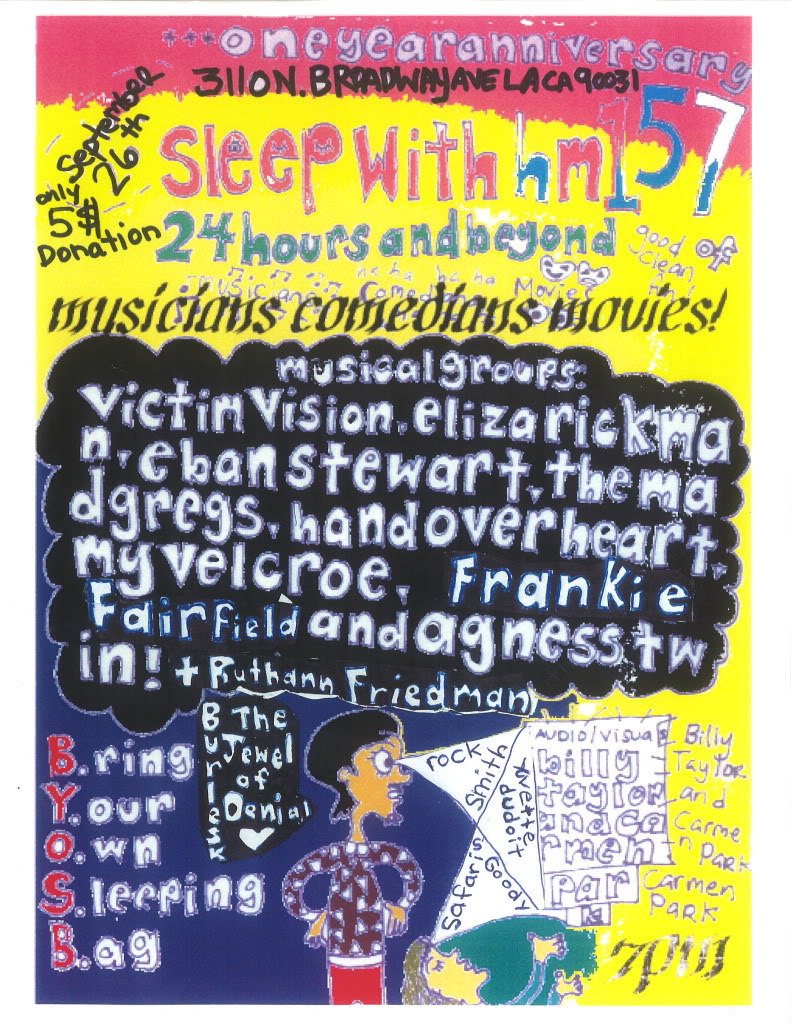 ***oneyearanniversary
3110 N. BROADWAY AVE LA CA 90031
September
26th
only
5$
Donation
sleep with hm157
24 hours and beyond
good
clean
of
musicians comedians movies!
musical groups:
victim vision, eliza rickma
n, eban stewart, the ma
dgregs, hand over heart,
my velcroe, Frankie
Fairfield and agness tw
in! + Ruthann Friedman
B.ring
Y.our
O.wn
S.leeping
B.ag
Burlesk
The
Jewel
of
Denial
rock
Smith
Yvette
dupoit
safaris
Goody
AUDIO/VISUALS
billy
taylor
and ca
rmen
par
k
Billy
Taylor
and
Carme
n Park
Carmen
Park
7pm